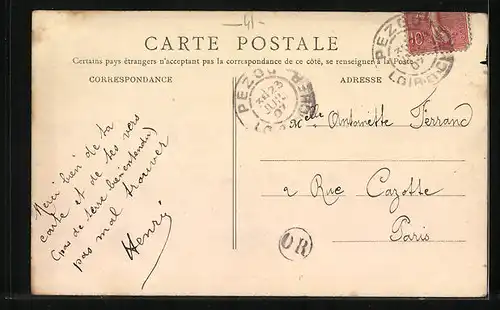 41
CARTE POSTALE
Certains pays étrangers n'acceptant pas la correspondance de ce côté, se renseigner à la Poste.
CORRESPONDANCE
ADRESSE
PEZOU
LOIR-ET-CHER
PEZOU
23
JUIL
07
Merci bien de ta
carte et de tes vers
(pas de terre bien entendu)
pas mal trouver
Henri
Melle Antoinette Ferrand
2 Rue Cazotte
Paris
OR